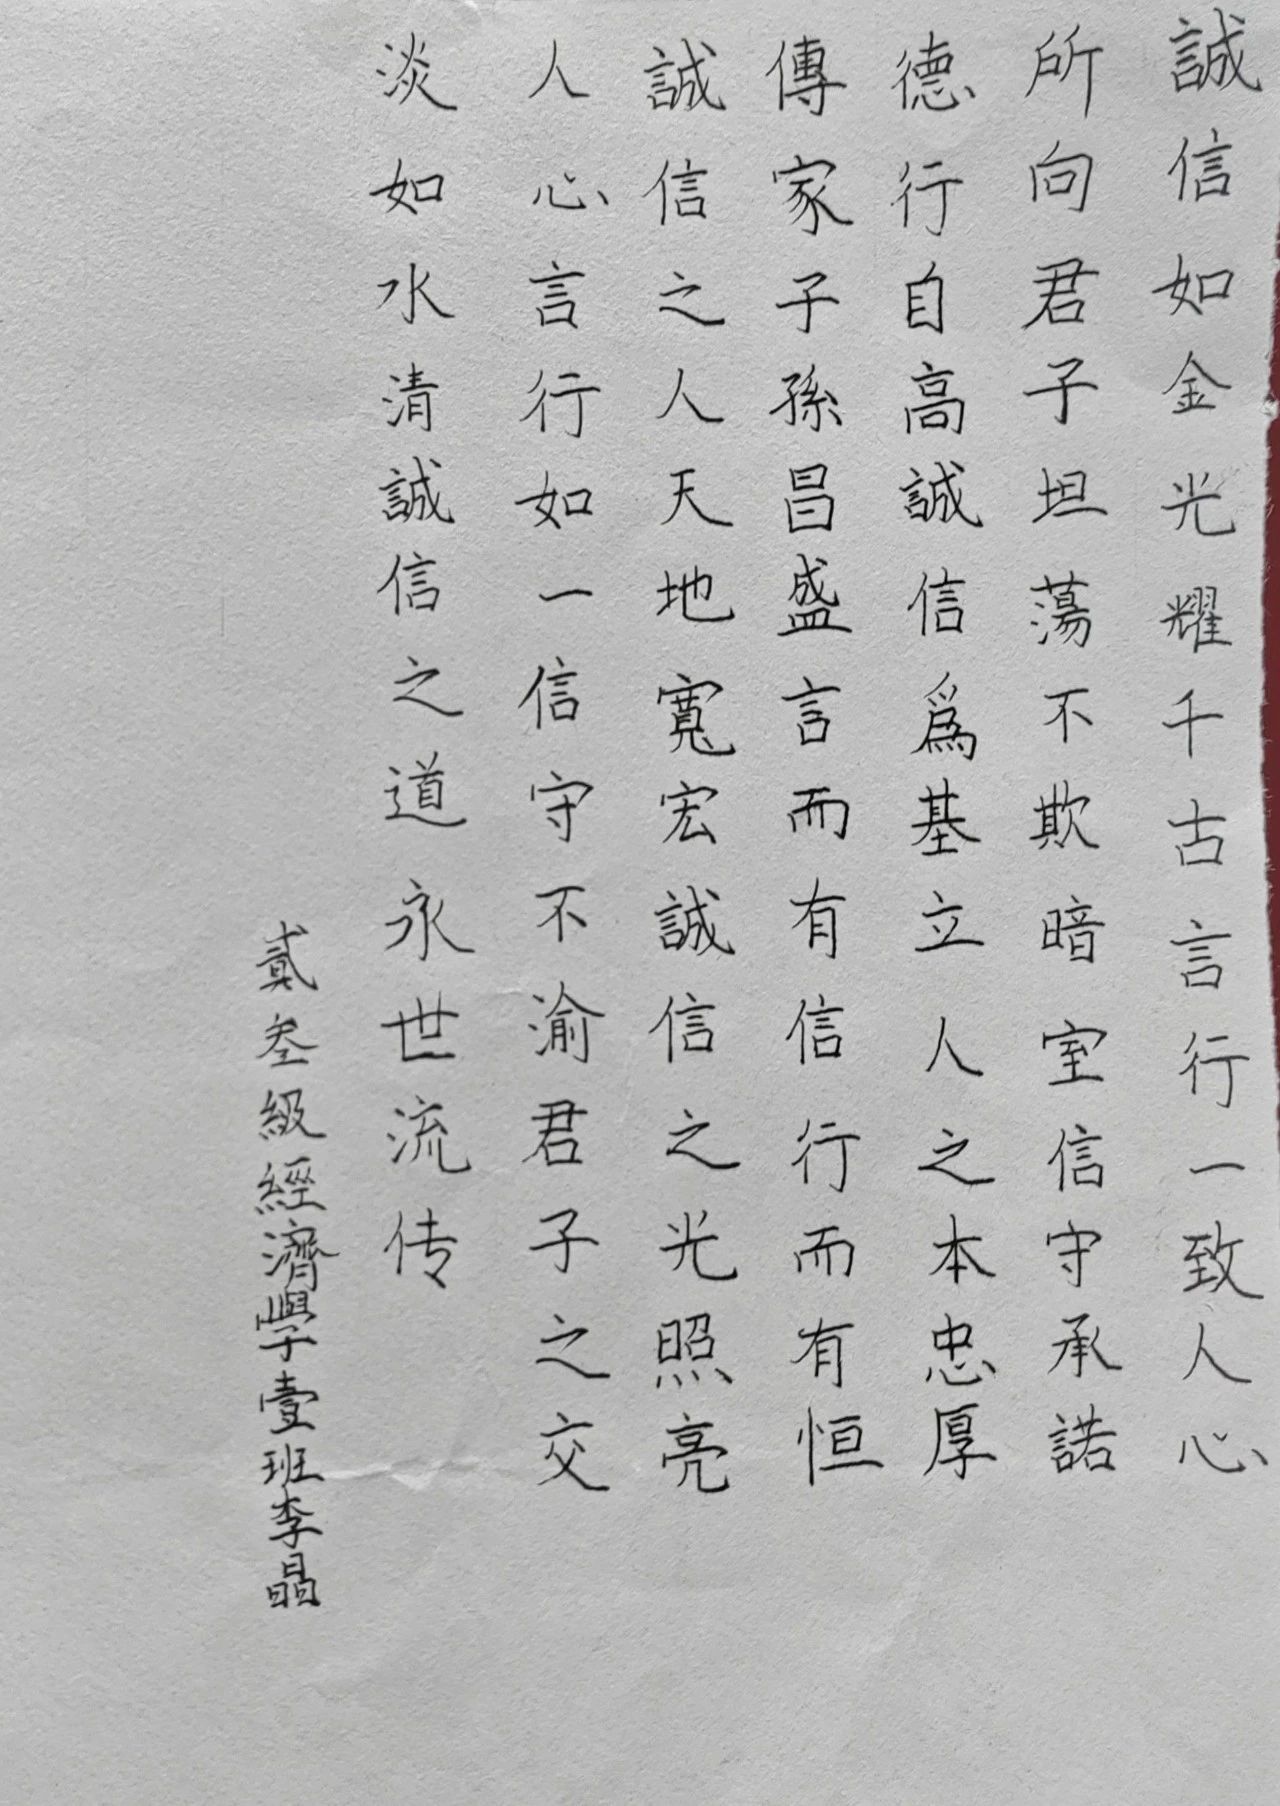 誠信如金光耀千古言行一致人心
所向君子坦蕩不欺暗室信守承諾
德行自高誠信爲基立人之本忠厚
傳家子孫昌盛言而有信行而有恒
誠信之人天地寬宏誠信之光照亮
人心言行如一信守不渝君子之交
淡如水清誠信之道永世流传
貳叁級經濟學壹班李晶